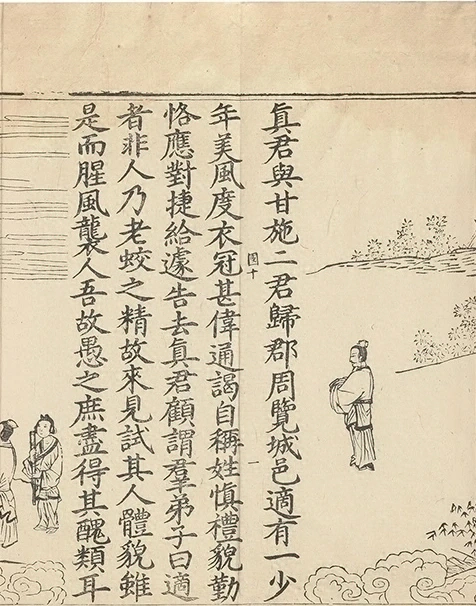 真君與甘施二君歸郡周覽城邑適有一少
圖十
一
年美風度衣冠甚偉通謁自稱姓慎禮貌勤
恪應對捷給遽告去真君顧謂羣弟子曰適
者非人乃老蛟之精故來見試其人體貌雖
是而腥風襲人吾故愚之庶盡得其醜類耳